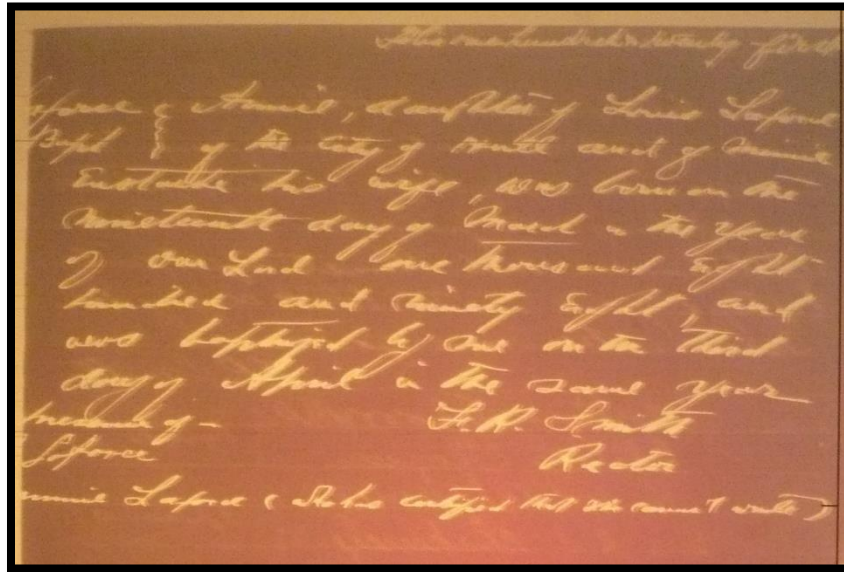 This one hundred & seventy first
Laforce { Annie, daughter of Louis Laforce
Bapt { of the City of and of Minnie
his wife, was born on the
nineteenth day of March in the year
of our Lord one thousand Eight
hundred and ninety Eight, and
was baptized by me on the Third
day of April in the same year
presence of - F. R. Smith
Laforce Rector
Minnie Laforce ( who has certified that she cannot write )